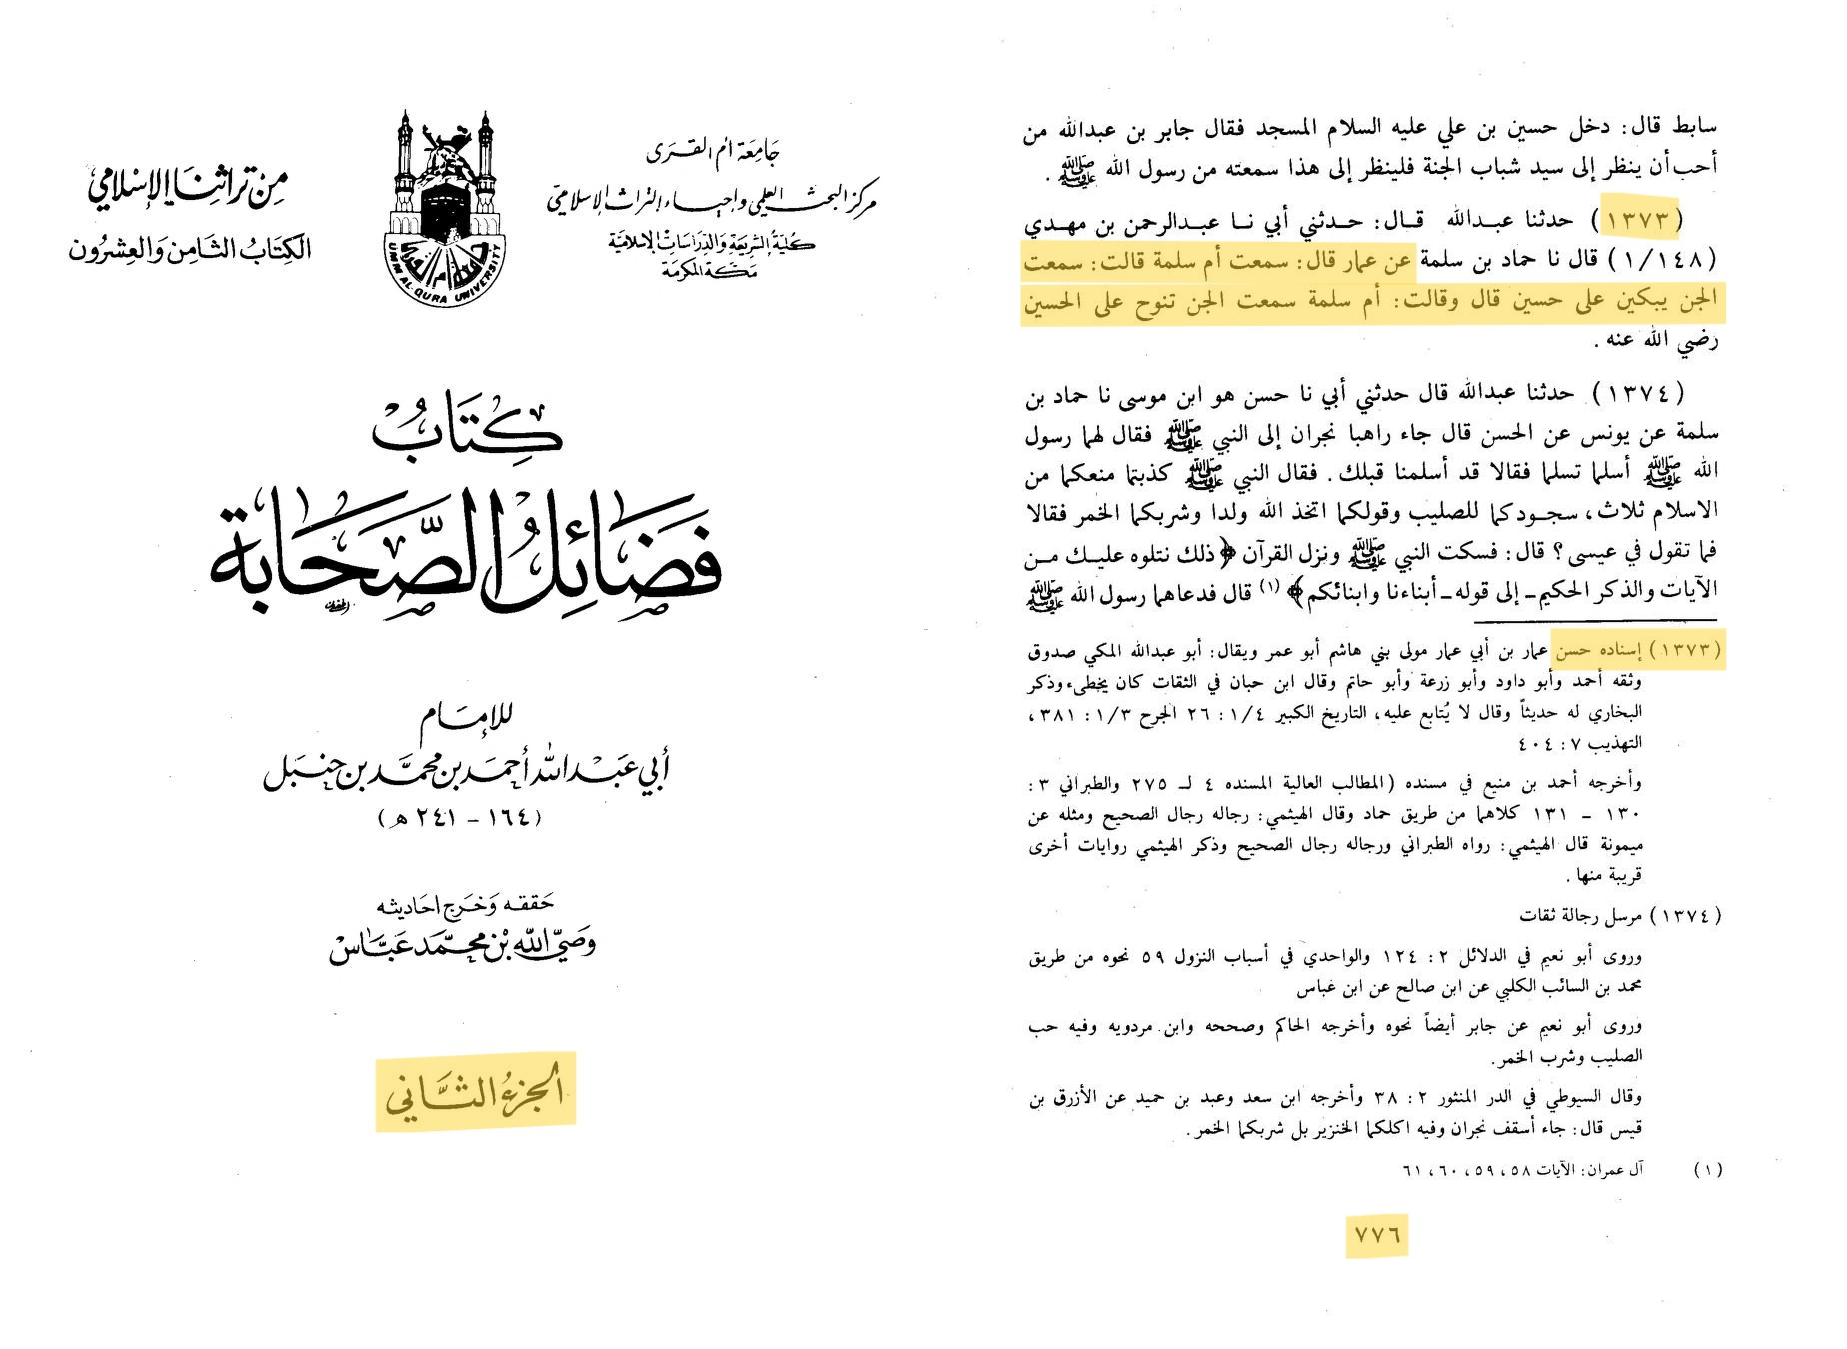 جامعة أم القرى
مركز البحث العلمي وإحياء التراث الإسلامي
كلية الشريعة والدراسات الإسلامية
مكة المكرمة
UMM AL-QURA UNIVERSITY
من تراثنا الإسلامي
الكتاب الثامن والعشرون
كتاب
فضائل الصحابة
للإمام
أبي عبد الله أحمد بن محمد بن حنبل
(١٦٤ - ٢٤١ هـ)
حققه وخرج احاديثه
وصي الله بن محمد عباس
الجزء الثاني
سابط قال: دخل حسين بن علي عليه السلام المسجد فقال جابر بن عبدالله من
أحب أن ينظر إلى سيد شباب الجنة فلينظر إلى هذا سمعته من رسول الله ﷺ .
(١٣٧٣) حدثنا عبدالله قال: حدثني أبي نا عبدالرحمن بن مهدي
(١/١٤٨) قال نا حماد بن سلمة عن عمار قال: سمعت أم سلمة قالت: سمعت
الجن يبكين على حسين قال وقالت: أم سلمة سمعت الجن تنوح على الحسين
رضي الله عنه .
(١٣٧٤) حدثنا عبدالله قال حدثني أبي نا حسن هو ابن موسى نا حماد بن
سلمة عن يونس عن الحسن قال جاء راهبا نجران إلى النبي ﷺ فقال لهما رسول
الله ﷺ أسلما تسلما فقالا قد أسلمنا قبلك . فقال النبي ﷺ كذبتما منعكما من
الاسلام ثلاث، سجودكما للصليب وقولكما اتخذ الله ولدا وشربكما الخمر فقالا
فما تقول في عيسى؟ قال: فسكت النبي ﷺ ونزل القرآن ﴿ذلك نتلوه عليك من
الآيات والذكر الحكيم ـ إلى قوله ـ أبناءنا وابنائكم﴾ (١) قال فدعاهما رسول الله ﷺ
(١٣٧٣) إسناده حسن عمار بن أبي عمار مولى بني هاشم أبو عمر ويقال: أبو عبدالله المكي صدوق
وثقه أحمد وأبو داود وأبو زرعة وأبو حاتم وقال ابن حبان في الثقات كان يخطىء وذكر
البخاري له حديثاً وقال لا يُتابع عليه، التاريخ الكبير ١/٤ : ٢٦ الجرح ١/٣ : ٣٨١،
التهذيب ٧ : ٤٠٤
وأخرجه أحمد بن منيع في مسنده (المطالب العالية المسنده ٤ لـ ٢٧٥ والطبراني ٣ :
١٣٠ ـ ١٣١ كلاهما من طريق حماد وقال الهيثمي: رجاله رجال الصحيح ومثله عن
ميمونة قال الهيثمي: رواه الطبراني ورجاله رجال الصحيح وذكر الهيثمي روايات أخرى
قريبة منها .
(١٣٧٤) مرسل رجالة ثقات
وروى أبو نعيم في الدلائل ٢ : ١٢٤ والواحدي في أسباب النزول ٥٩ نحوه من طريق
محمد بن السائب الكلبي عن ابن صالح عن ابن غباس
وروى أبو نعيم عن جابر أيضاً نحوه وأخرجه الحاكم وصححه وابن مردويه وفيه حب
الصليب وشرب الخمر.
وقال السيوطي في الدر المنثور ٢ : ٣٨ وأخرجه ابن سعد وعبد بن حميد عن الأزرق بن
قيس قال: جاء أسقف نجران وفيه اكلكما الخنزير بل شربكما الخمر.
(١) آل عمران: الآيات ٥٨، ٥٩، ٦٠، ٦١
٧٧٦